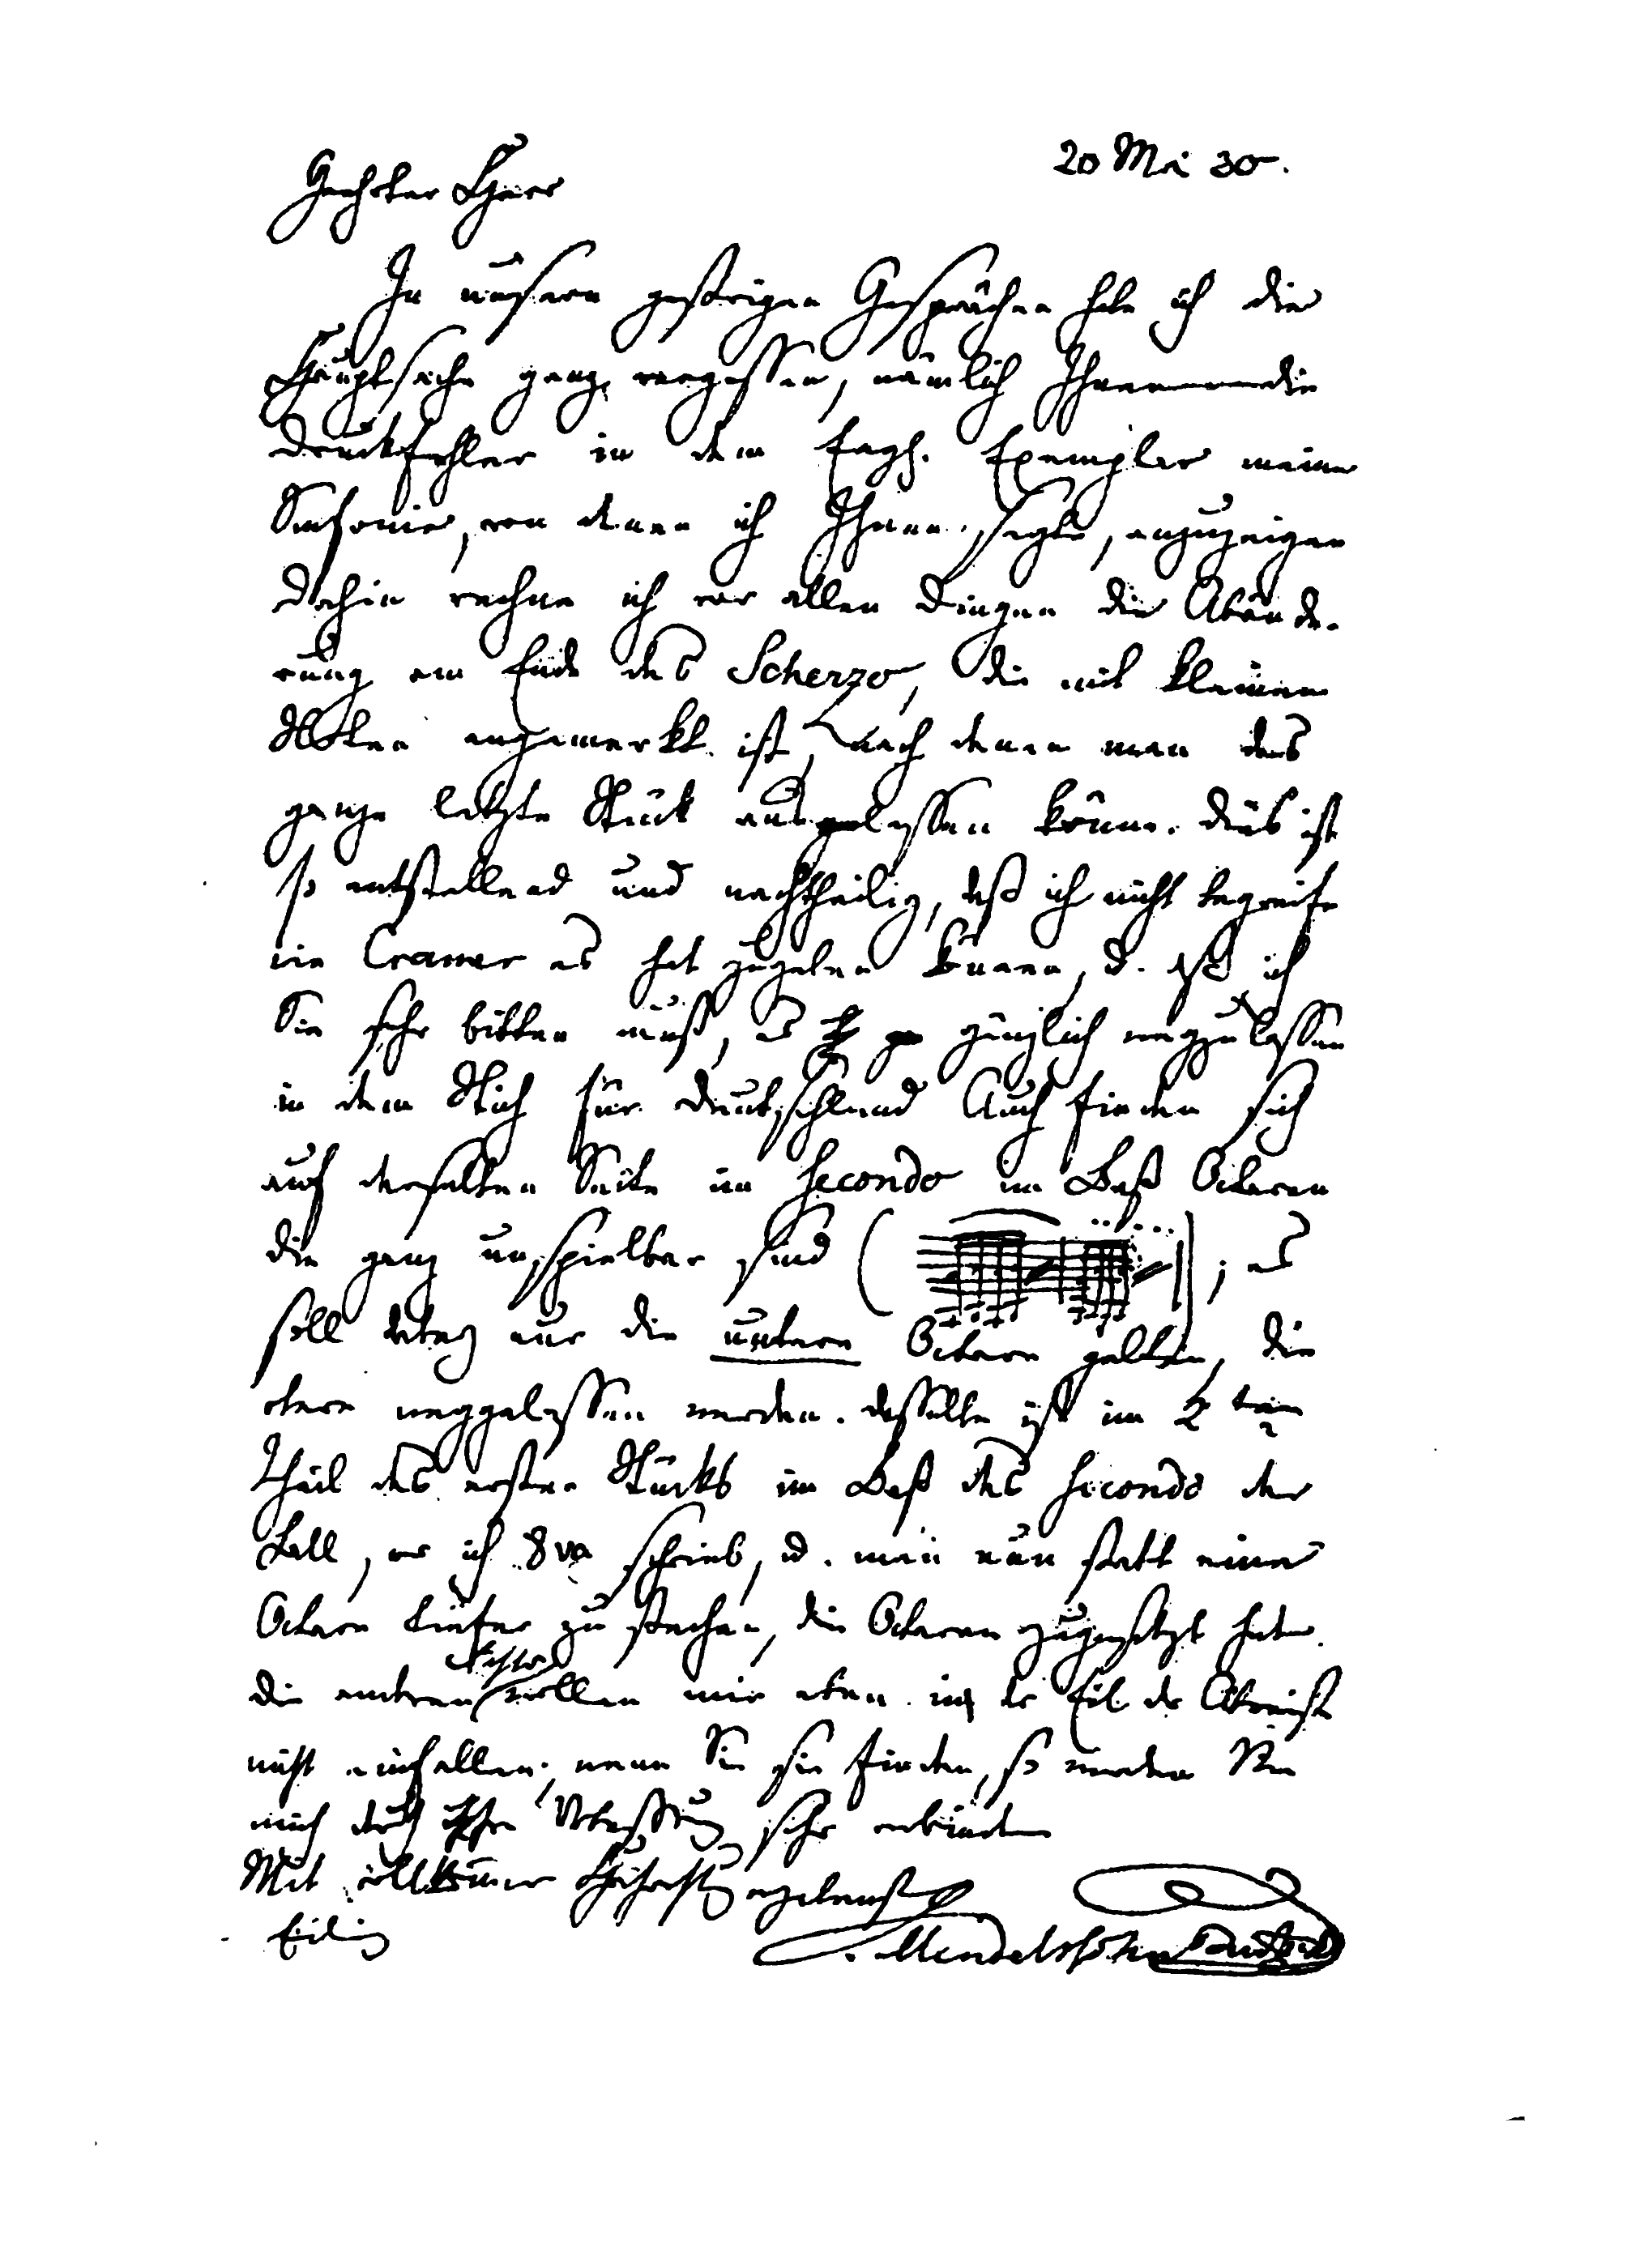 20 Mai 30.
Geehrter Herr
In unsern gestrigen Gesprächen habe ich die
Hauptsache ganz vergessen, nämlich Ihnen die
Druckfehler in dem Engl. Exemplar meiner
Sinfonie, von denen ich Ihnen sagte, anzuzeigen
Dahin rechne ich vor allen Dingen die Abände-
rung am Ende des Scherzo, die mit kleinen
Noten angemerkt ist, nach denen man das
ganze letzte Stück auslassen könne. Dies ist
so entstellend und nachtheilig, daß ich nicht begreife
wie Cramer es hat zugeben können, u. daß ich
Sie sehr bitten muß, es gänzlich wegzulassen
in dem Stich für Deutschland Auch finden sich
auf derselben Seite im Secondo im Baß Octaven
die ganz unspielbar sind ( ); es
soll nur die untere Octave gelten, die
obere weggelassen werden. Dasselbe ist im 2 ten
Theil des ersten Stücks im Baß des Secondo der
Fall, wo ich 8va schrieb, u. man nun statt eine
Octave tiefer zu stechen, die Octaven zugesetzt hat.
die anderen Fehler wollen mir eben in der Eil der Abreise
nicht einfallen; wenn Sie sie finden, so werden Sie
mich durch ihre Verbesserung sehr verbinden
Mit vollkommner Hochachtung ergebenst
Eilig
F. Mendelssohn Bartholdy